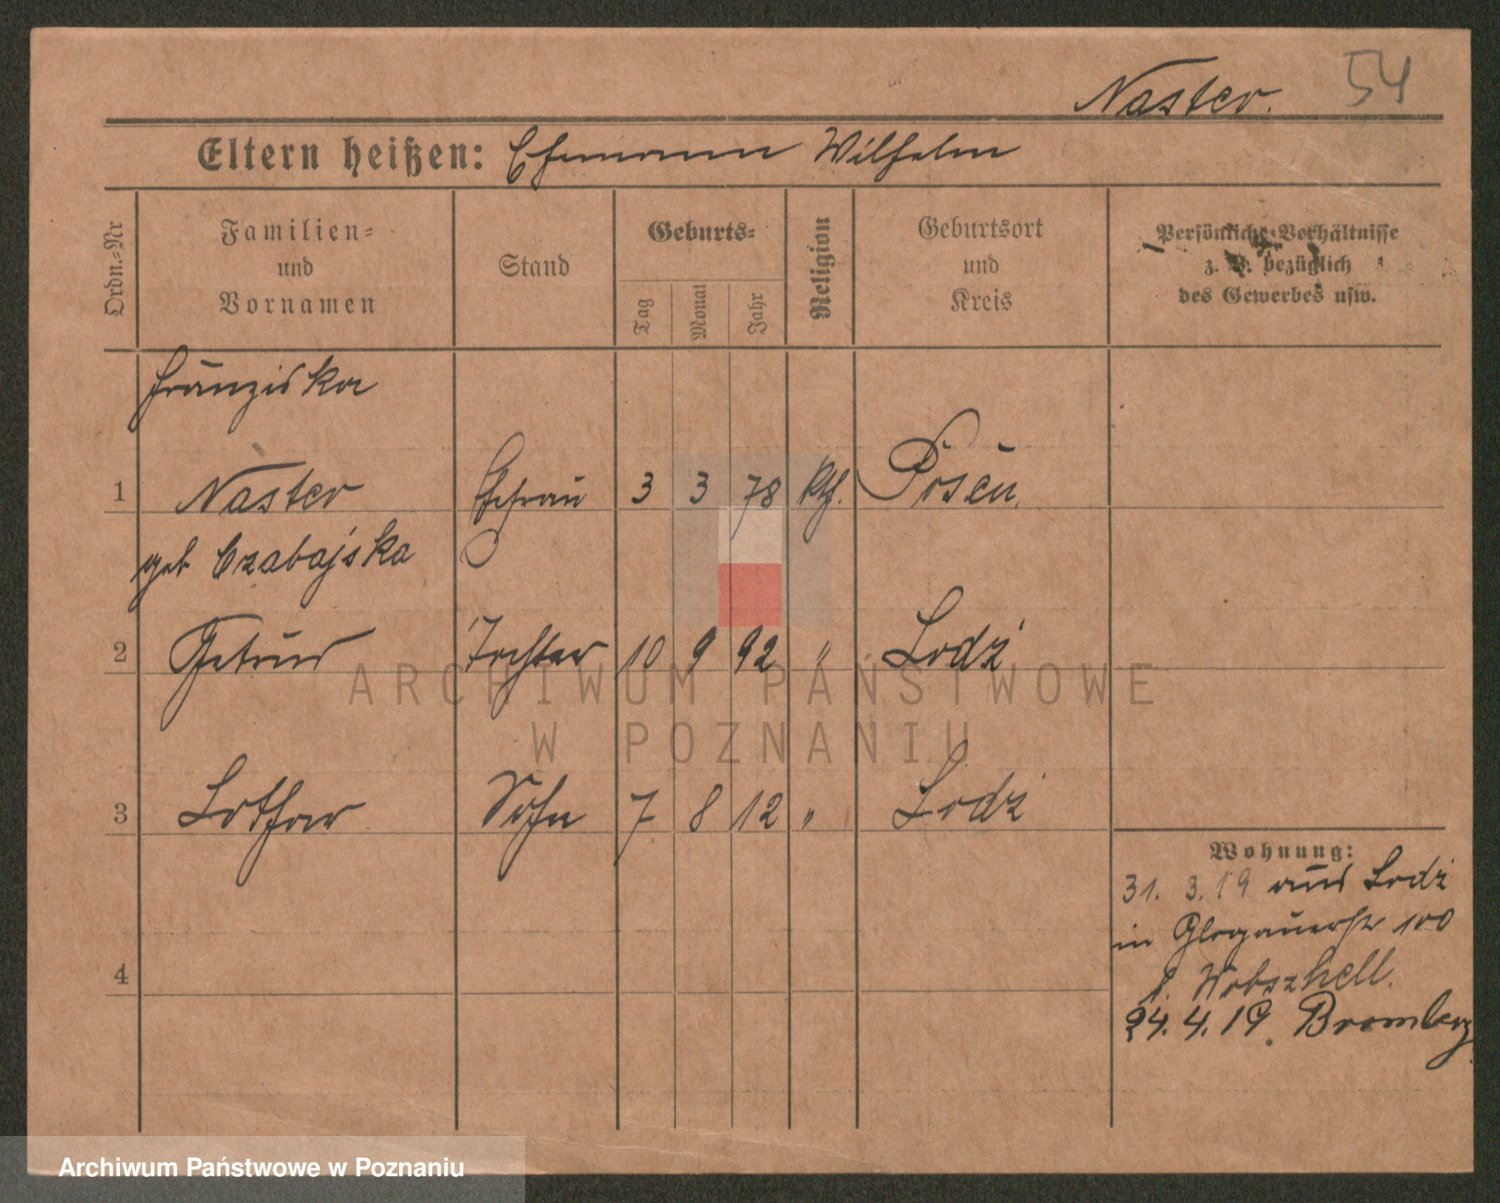 54
Naster.
Eltern heißen: Ehemann Wilhelm
Ordn.-Nr
Familien-
und
Vornamen
Stand
Geburts-
Tag
Monat
Jahr
Religion
Geburtsort
und
Kreis
Persönliche Verhältnisse
z. B. bezüglich
des Gewerbes usw.
Franziska
1 Naster Ehefrau 3 3 78 kth. Posen.
geb Czabajska
2 Getrud Tochter 10 9 92 " Lodz
3 Lothar Sohn 7 8 12 " Lodz
4
Wohnung:
31. 3. 19 aus Lodz
in Glogauerstr 100
b.
24. 4. 19. Bromberg
ARCHIWUM PAŃSTWOWE
W POZNANIU
Archiwum Państwowe w Poznaniu